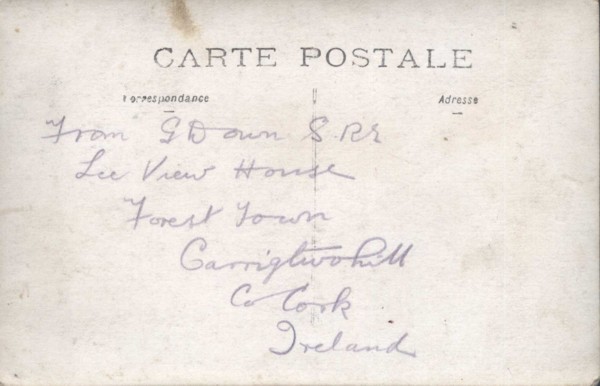 CARTE POSTALE
Correspondance
Adresse
From G Down S.R.E
Lee View House
Forest Town
Carrigtwohill
Co Cork
Ireland